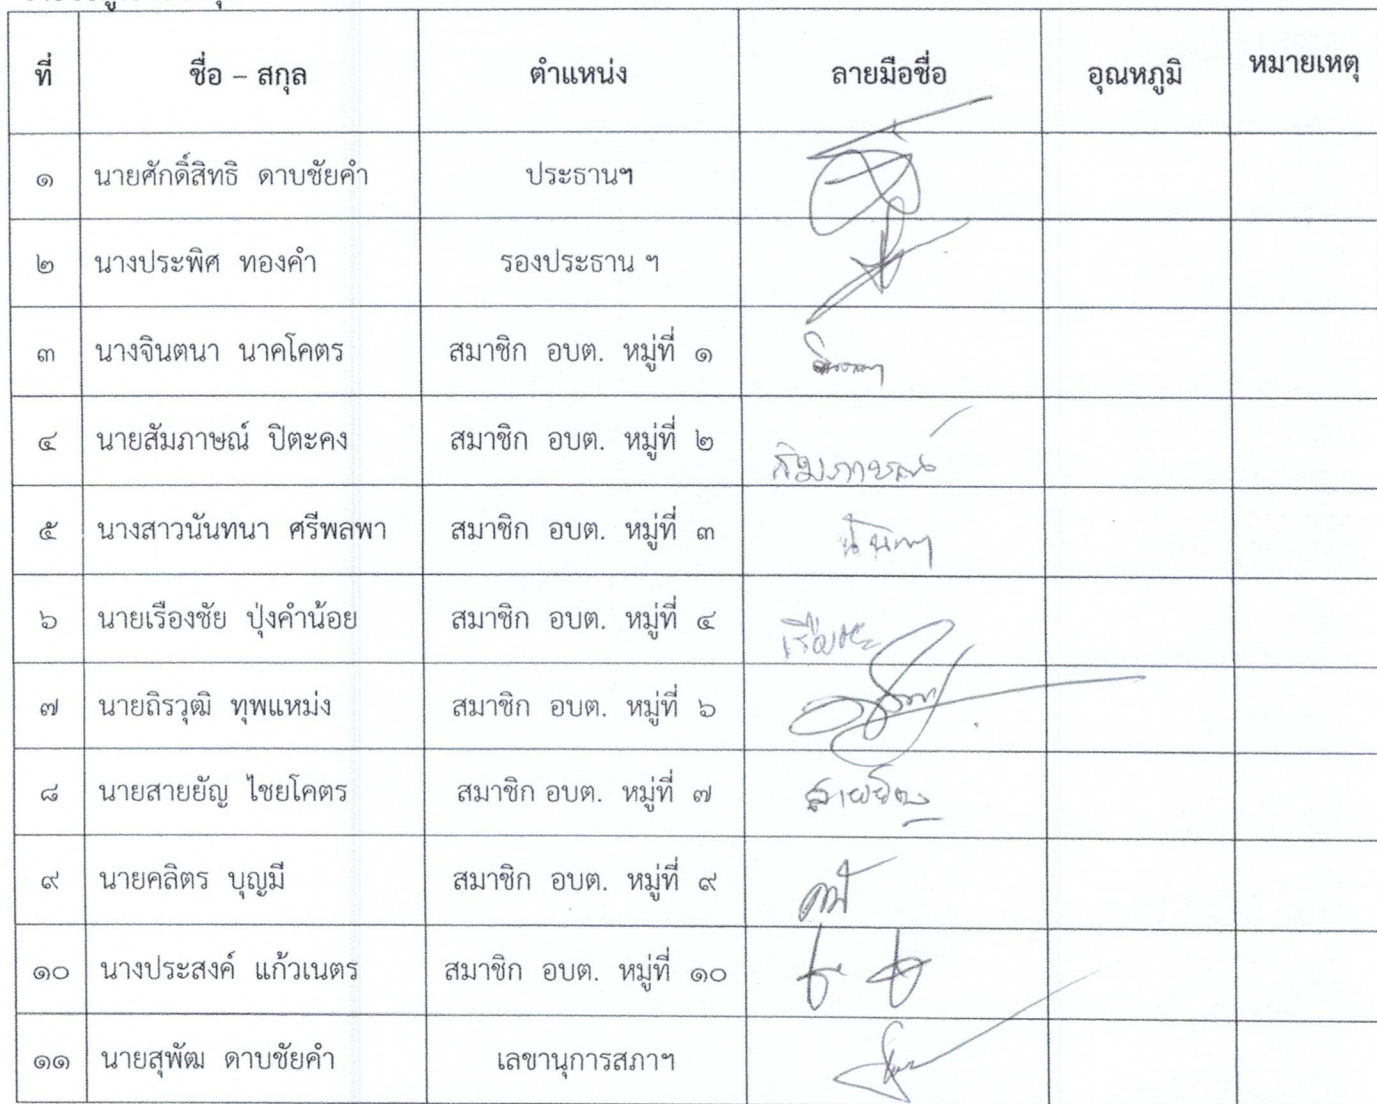 ที่ ชื่อ – สกุล ตำแหน่ง ลายมือชื่อ อุณหภูมิ หมายเหตุ
๑ นายศักดิ์สิทธิ ดาบชัยคำ ประธานฯ
๒ นางประพิศ ทองคำ รองประธาน ฯ
๓ นางจินตนา นาคโคตร สมาชิก อบต. หมู่ที่ ๑
๔ นายสัมภาษณ์ ปิตะคง สมาชิก อบต. หมู่ที่ ๒ สัมภาษณ์
๕ นางสาวนันทนา ศรีพลพา สมาชิก อบต. หมู่ที่ ๓
๖ นายเรืองชัย ปุ่งคำน้อย สมาชิก อบต. หมู่ที่ ๔
๗ นายถิรวุฒิ ทุพแหม่ง สมาชิก อบต. หมู่ที่ ๖
๘ นายสายยัญ ไชยโคตร สมาชิก อบต. หมู่ที่ ๗ สายยัญ
๙ นายคลิตร บุญมี สมาชิก อบต. หมู่ที่ ๙
๑๐ นางประสงค์ แก้วเนตร สมาชิก อบต. หมู่ที่ ๑๐
๑๑ นายสุพัฒ ดาบชัยคำ เลขานุการสภาฯ